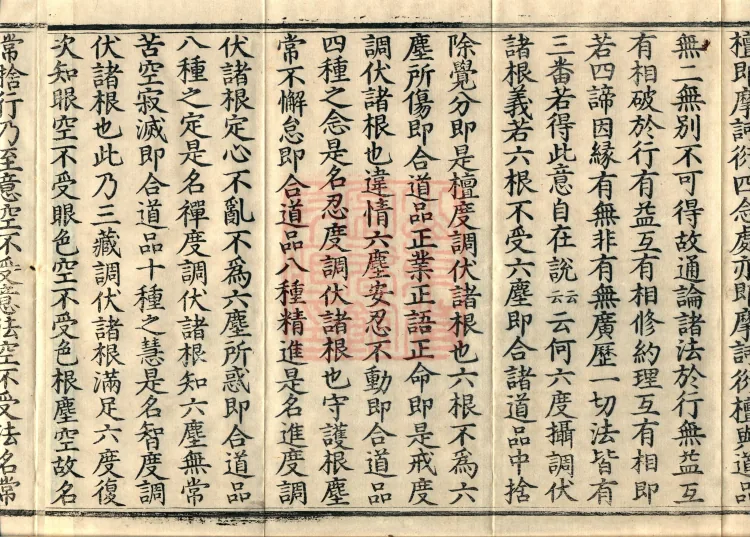 檀即摩訶衍四念處亦即摩訶衍檀與道品
無二無別不可得故通論諸法於行無益互
有相破於行有益互有相修約理互有相即
若四諦因緣有無非有無廣歷一切法皆有
三番若得此意自在說云云云何六度攝調伏
諸根義若六根不受六塵即合諸道品中捨
除覺分即是檀度調伏諸根也六根不為六
塵所傷即合道品正業正語正命即是戒度
調伏諸根也違情六塵安忍不動即合道品
四種之念是名忍度調伏諸根也守護根塵
常不懈怠即合道品八種精進是名進度調
伏諸根定心不亂不為六塵所惑即合道品
八種之定是名禪度調伏諸根知六塵無常
苦空寂滅即合道品十種之慧是名智度調
伏諸根也此乃三藏調伏諸根滿足六度復
次知眼空不受眼色空不受色根塵空故名
常捨行乃至意空不受意法空不受法名常